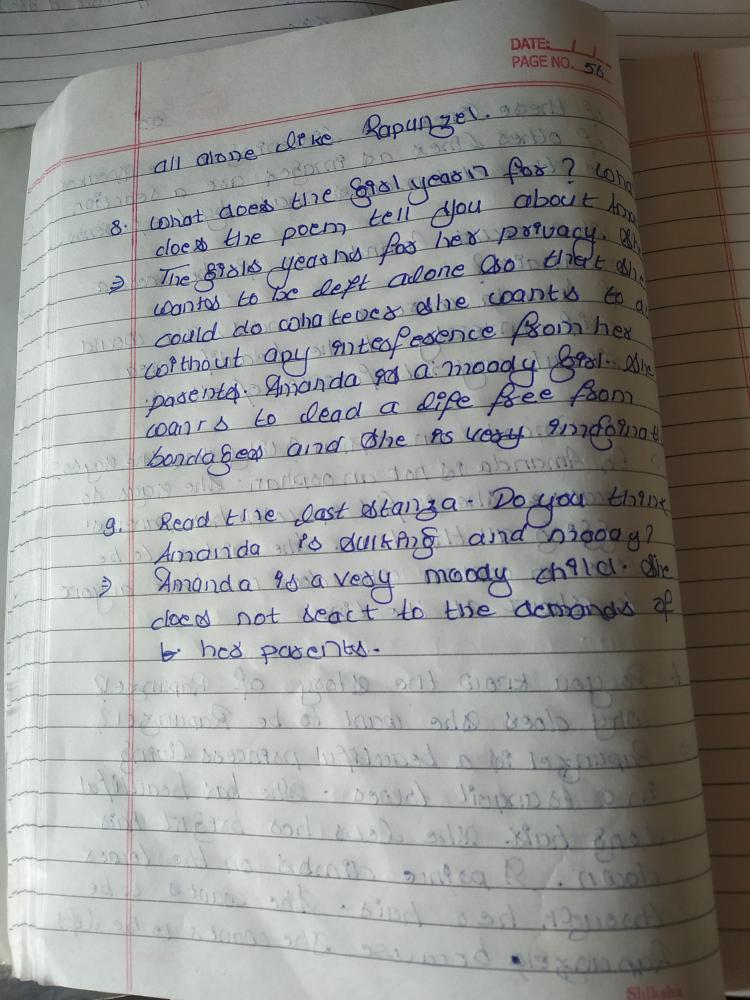 DATE: / /
PAGE NO. 56
all alone like Rapunzel.
8. What does the girl yearn for? Wha
does the poem tell you about
⇒ The girls yearns for her privacy. Sh
wants to be left alone so that she
could do whatever she wants to
without any interference from her
parents. Amanda is a moody girl. She
wants to lead a life free from
bondages and she is very imginat
9. Read the last stanza. Do you think
Amanda is sulking and moody?
⇒ Amanda is a very moody child. She
does not react to the demands of
her parents.
Shiksha